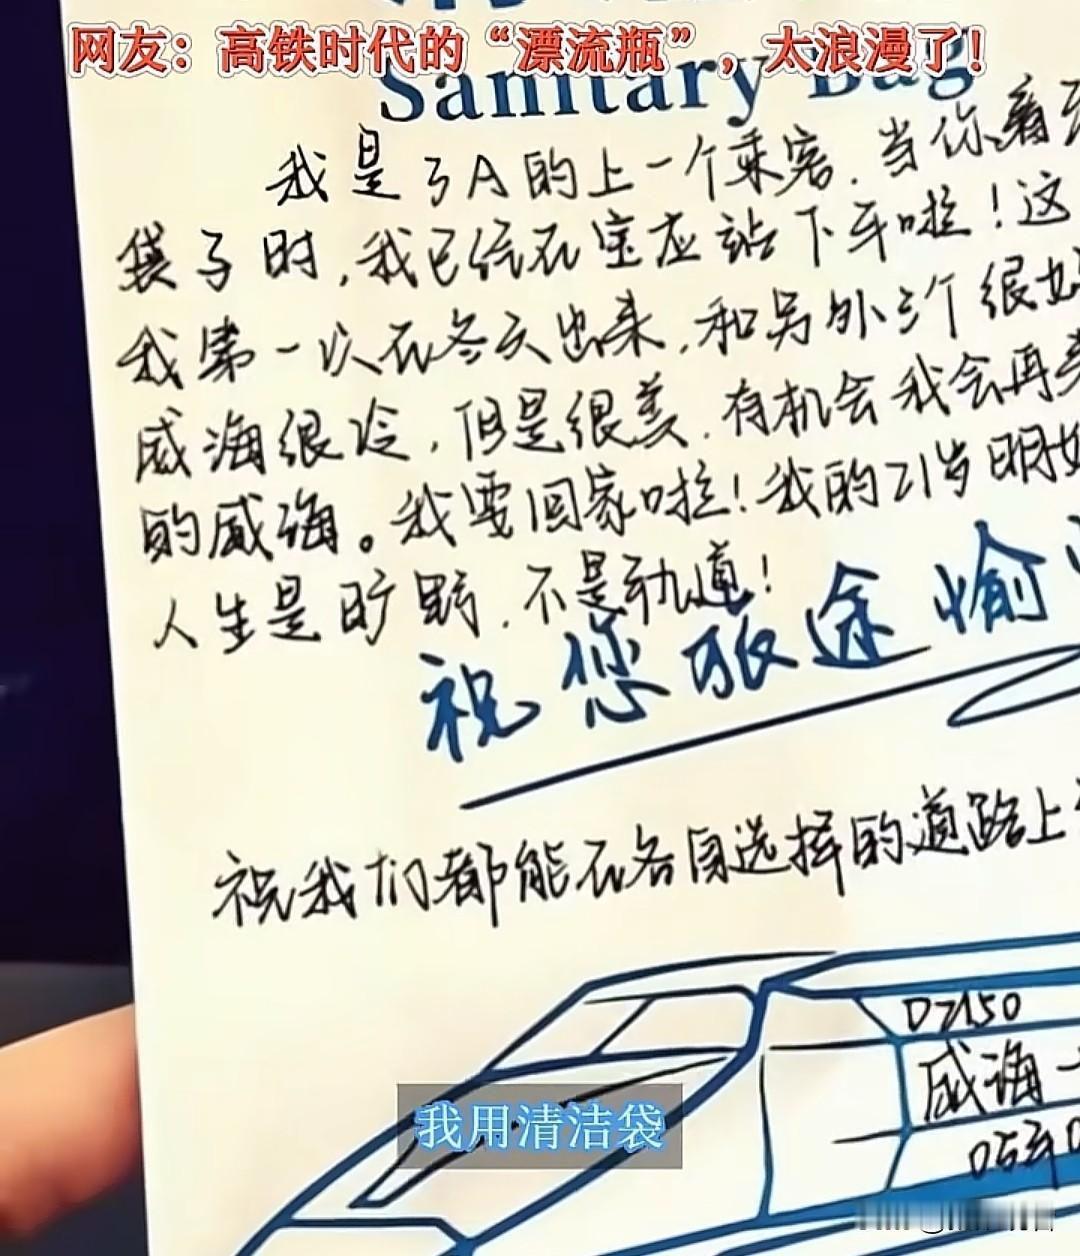 网友：高铁时代的“漂流瓶”，太浪漫了！
Sanitary Bag
我是3A的上一个乘客.当你看到
袋子时,我已经在宝应站下车啦!这
我第一次在冬天出来,和另外三个很好
威海很冷,但是很美.有机会我会再来
的威海。我要回家啦!我的21岁明媚
人生是旷野.不是轨道!
祝您旅途愉
祝我们都能在各自选择的道路上
D2150
威海一
05车0
我用清洁袋